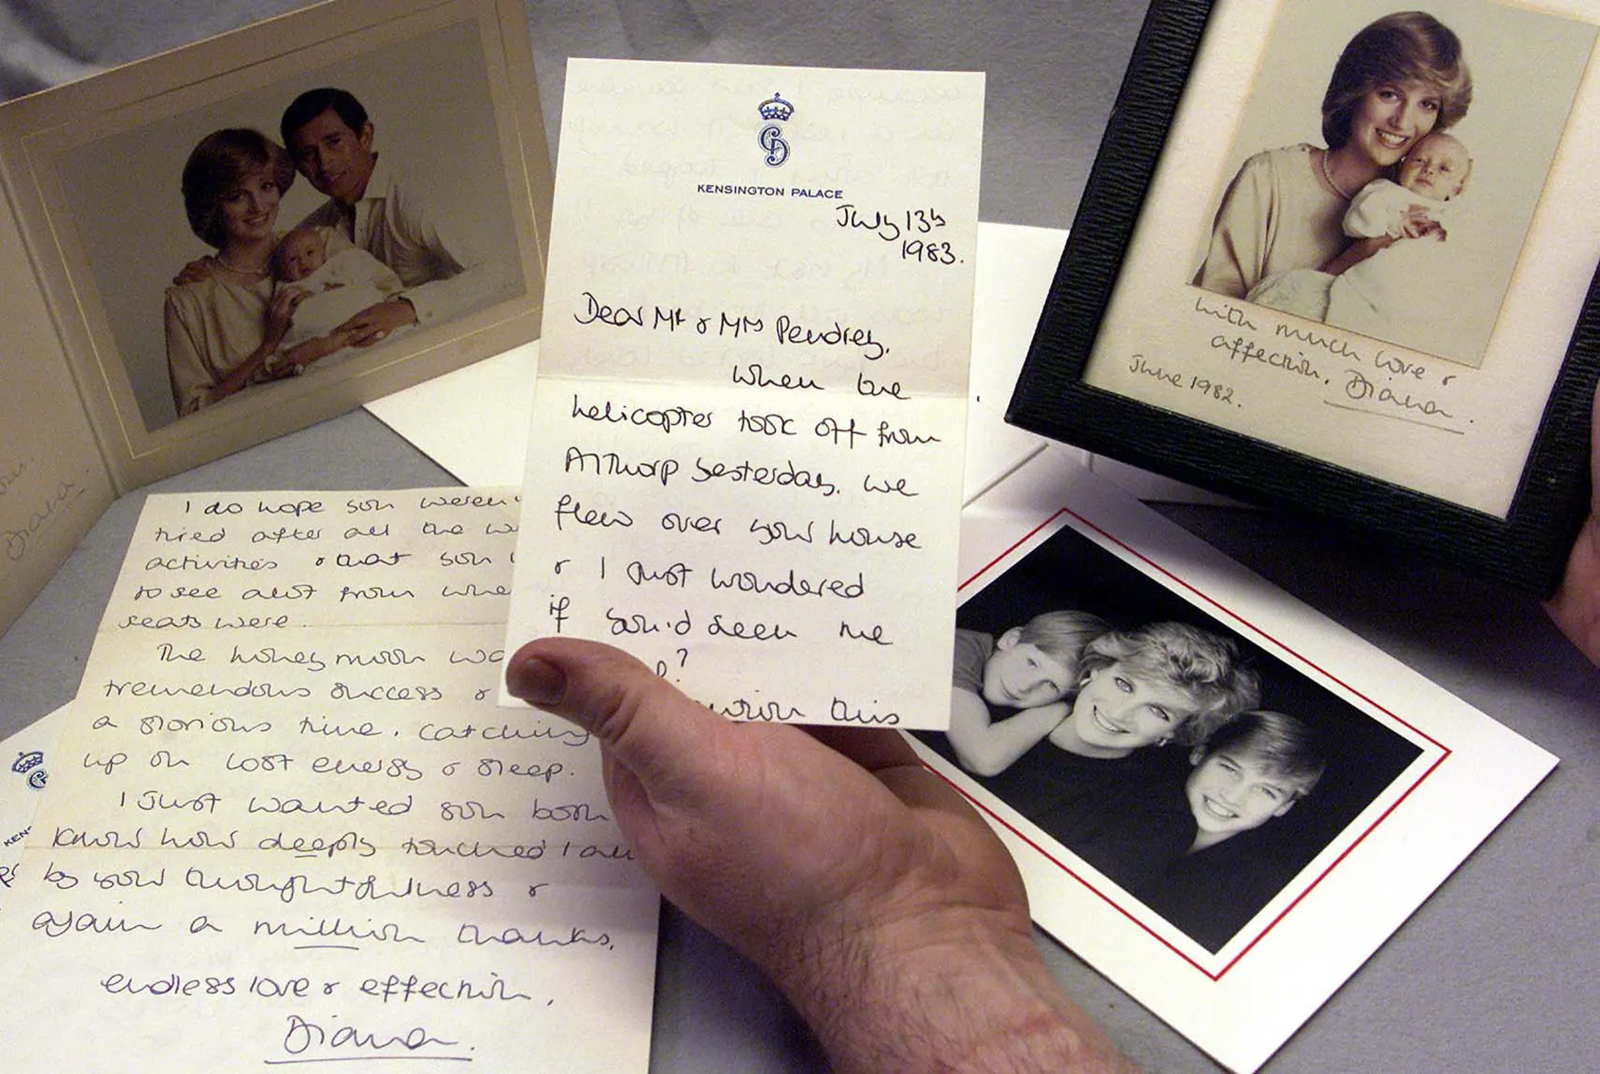 KENSINGTON PALACE
July 13th
1983.
Dear Mr & Mrs Pendrey,
When the
helicopter took off from
Althorp yesterday, we
flew over your house
& I just wondered
if you'd seen me
?
this
with much love &
affection, Diana.
June 1982.
Diana
I do hope you weren't
tired after all the
activities & that you
to see alot from
seats were.
The honeymoon
tremendous success &
a glorious time, catching
up on lost energy & sleep.
I just wanted you both
know how deeply touched I am
by your thoughtfulness &
again a million thanks,
endless love & affection,
Diana.
KEN